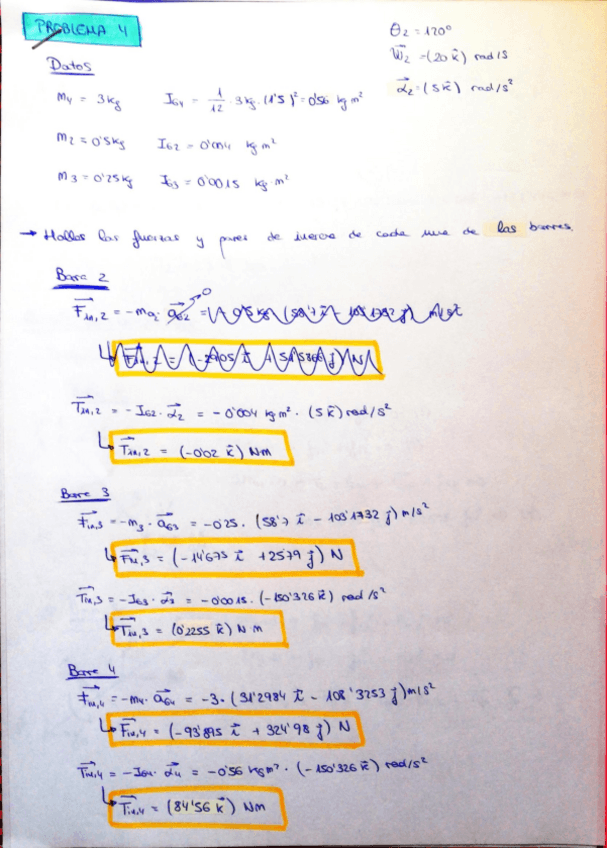 PROBLEMA 4
θ2 = 120°
W⃗2 = (20 k⃗) rad/s
α⃗2 = (5 k⃗) rad/s²
Datos
m4 = 3kg IG4 = 1/12 · 3kg · (1'5)² = 0'56 kg m²
m2 = 0'5kg IG2 = 0'004 kg m²
m3 = 0'25kg IG3 = 0'0015 kg m²
→ Hallar las fuerzas y pares de inercia de cada una de las barras.
Barra 2
F⃗in,2 = -m2 · a⃗G2 = 0
T⃗in,2 = -IG2 · α⃗2 = -0'004 kg m² · (5 k⃗) rad/s²
T⃗in,2 = (-0'02 k⃗) Nm
Barra 3
F⃗in,3 = -m3 · a⃗G3 = -0'25 · (58'7 i⃗ - 103'1732 j⃗) m/s²
F⃗in,3 = (-14'675 i⃗ + 25'79 j⃗) N
T⃗in,3 = -IG3 · α⃗3 = -0'0015 · (-150'326 k⃗) rad/s²
T⃗in,3 = (0'2255 k⃗) N m
Barra 4
F⃗in,4 = -m4 · a⃗G4 = -3 · (31'2984 i⃗ - 108'3253 j⃗) m/s²
F⃗in,4 = (-93'895 i⃗ + 324'98 j⃗) N
T⃗in,4 = -IG4 · α⃗4 = -0'56 kg m² · (-150'326 k⃗) rad/s²
T⃗in,4 = (84'56 k⃗) Nm